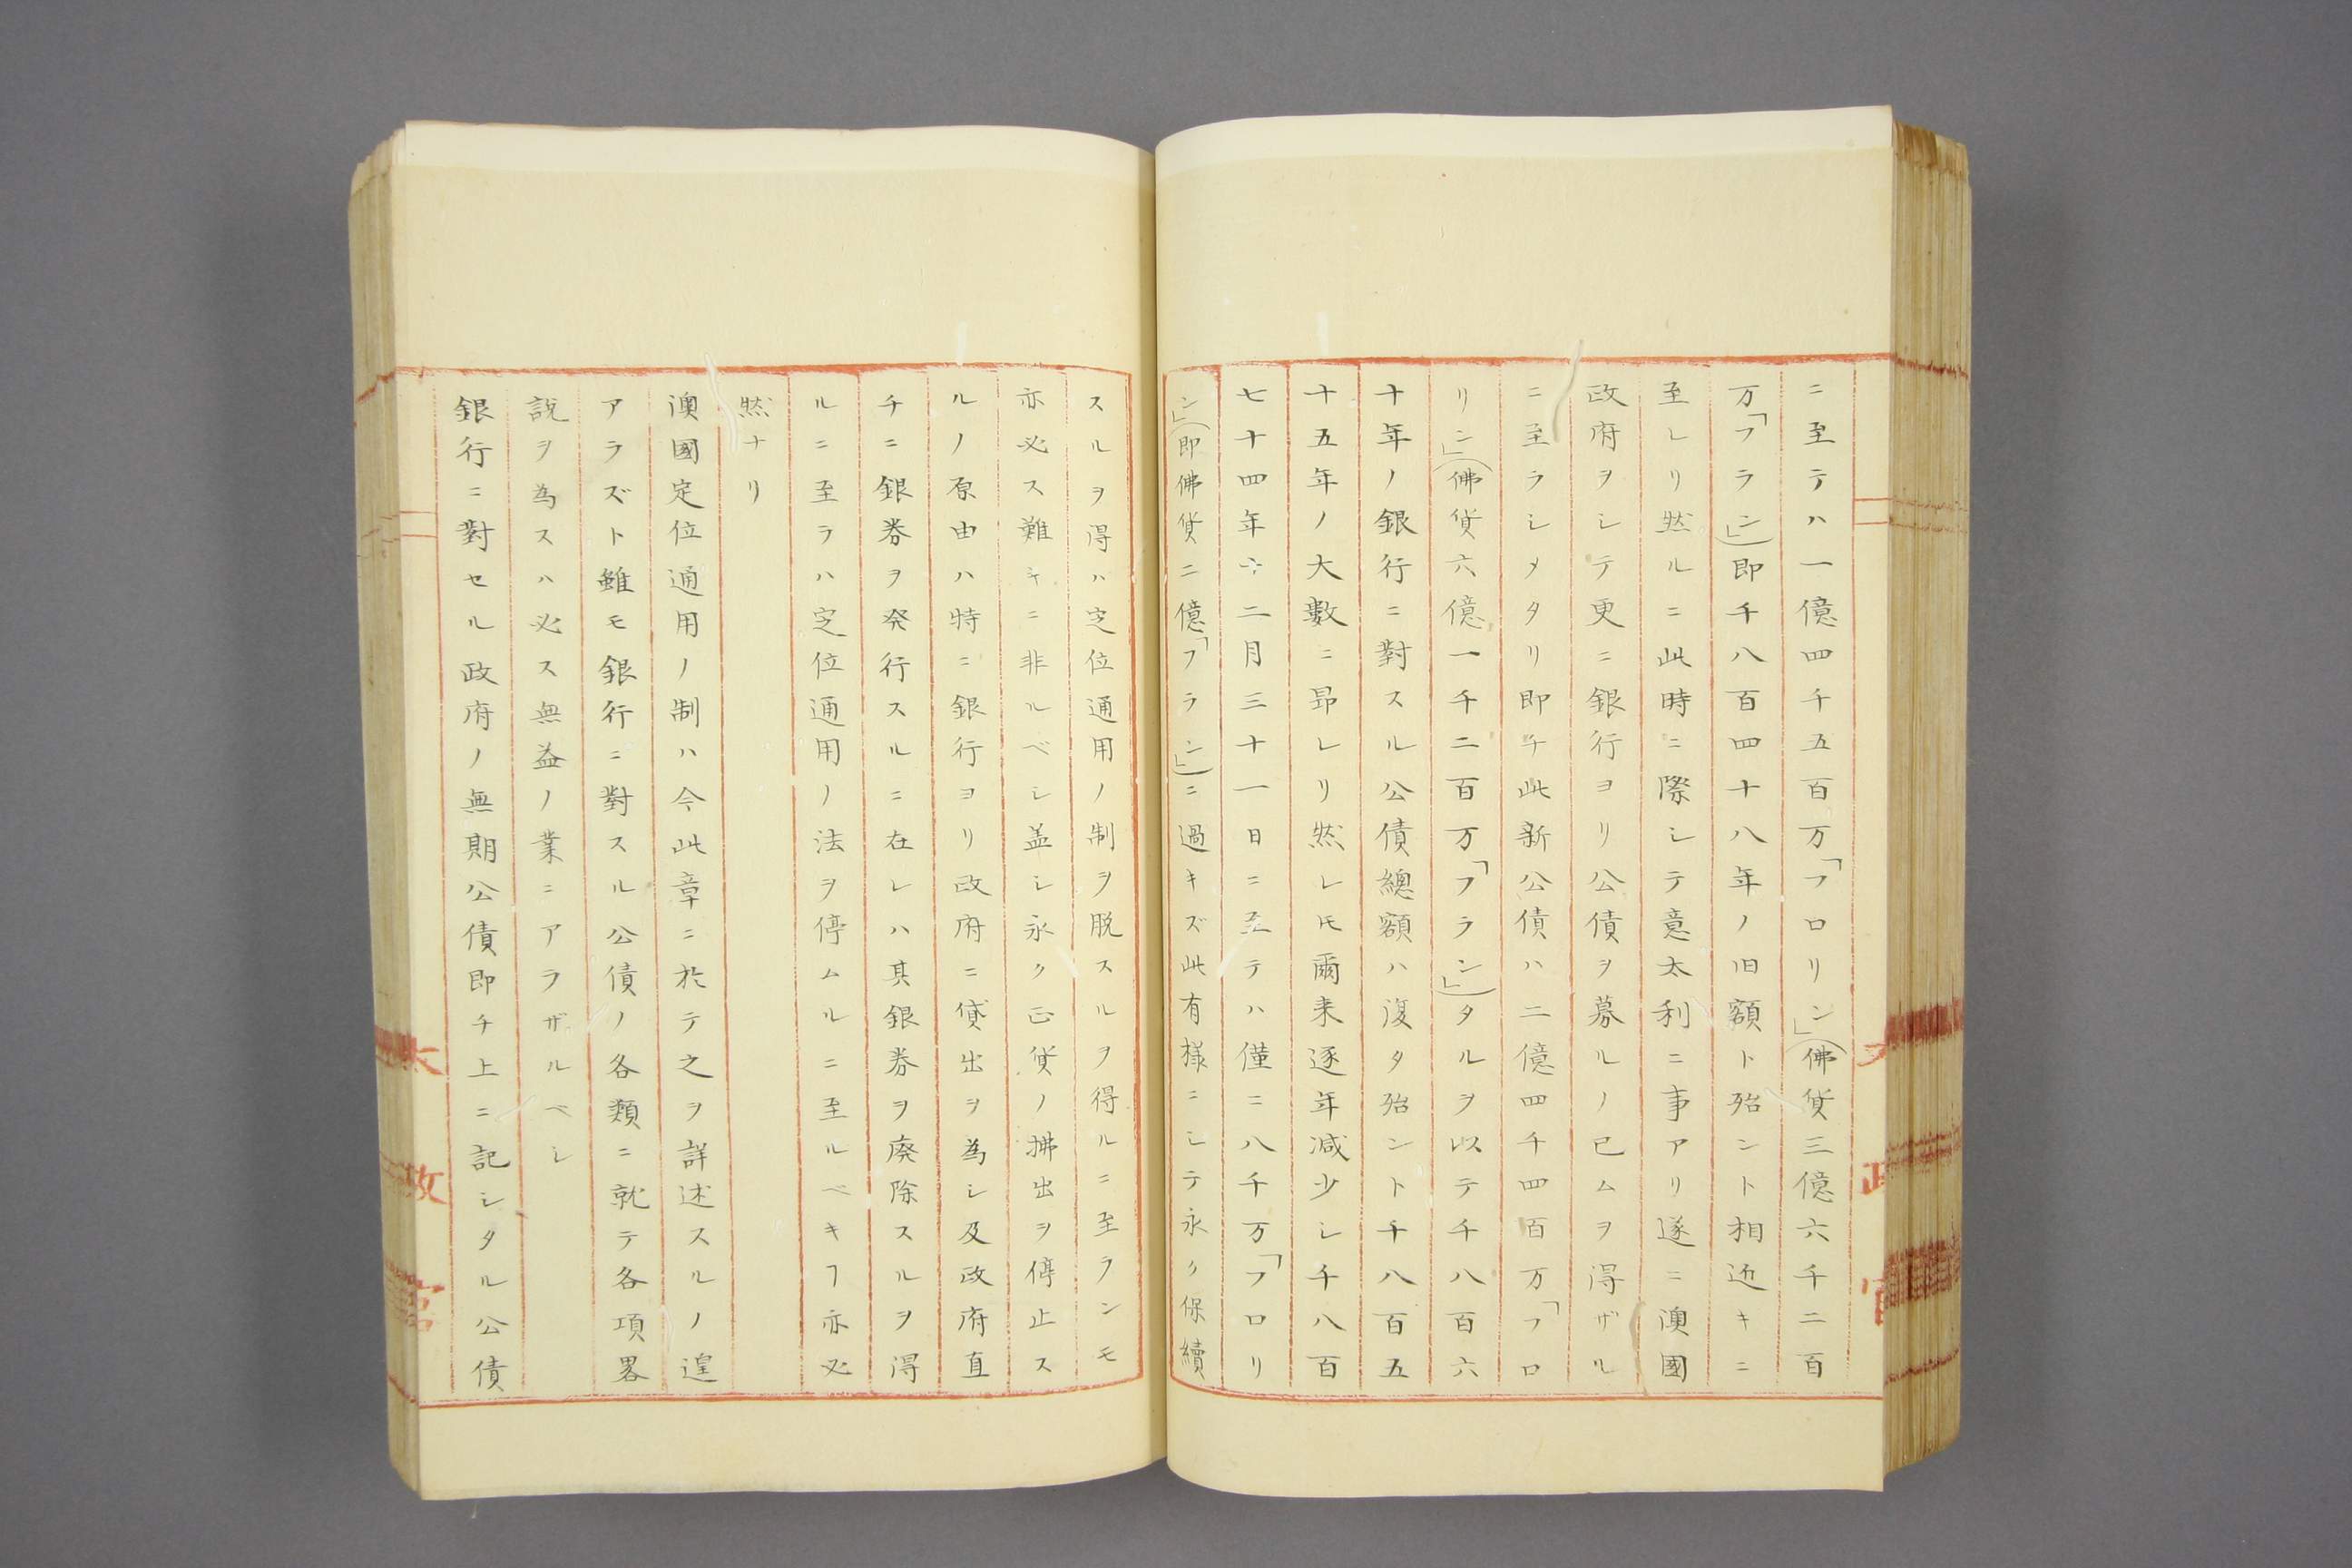 ニ至テハ一億四千五百万「フロリン」(佛貨三億六千二百
万「フラン」)即千八百四十八年ノ旧額ト殆ント相近キニ
至レリ然ルニ此時ニ際シテ意太利ニ事アリ遂ニ澳國
政府ヲシテ更ニ銀行ヨリ公債ヲ募ルノ已ムヲ得ザル
ニ至ラシメタリ即チ此新公債ハ二億四千四百万「フロ
リン」(佛貨六億一千二百万「フラン」)タルヲ以テ千八百六
十年ノ銀行ニ對スル公債總額ハ復タ殆ント千八百五
十五年ノ大數ニ昇レリ然レ𪜈爾来逐年减少シ千八百
七十四年十二月三十一日ニ至テハ僅ニ八千万「フロリ
ン」(即佛貨二億「フラン」)ニ過キズ此有様ニシテ永ク保續
スルヲ得ハ定位通用ノ制ヲ脱スルヲ得ルニ至ランモ
亦必ス難キニ非ルベシ盖シ永ク正貨ノ拂出ヲ停止ス
ルノ原由ハ特ニ銀行ヨリ政府ニ貸出ヲ為シ及政府直
チニ銀券ヲ発行スルニ在レハ其銀券ヲ廃除スルヲ得
ルニ至ラハ定位通用ノ法ヲ停ムルニ至ルベキヿ亦必
然ナリ
澳國定位通用ノ制ハ今此章ニ於テ之ヲ詳述スルノ遑
アラズト雖モ銀行ニ對スル公債ノ各類ニ就テ各項畧
說ヲ為スハ必ス無益ノ業ニアラザルベシ
銀行ニ對セル政府ノ無期公債即チ上ニ記シタル公債
太政官
政官